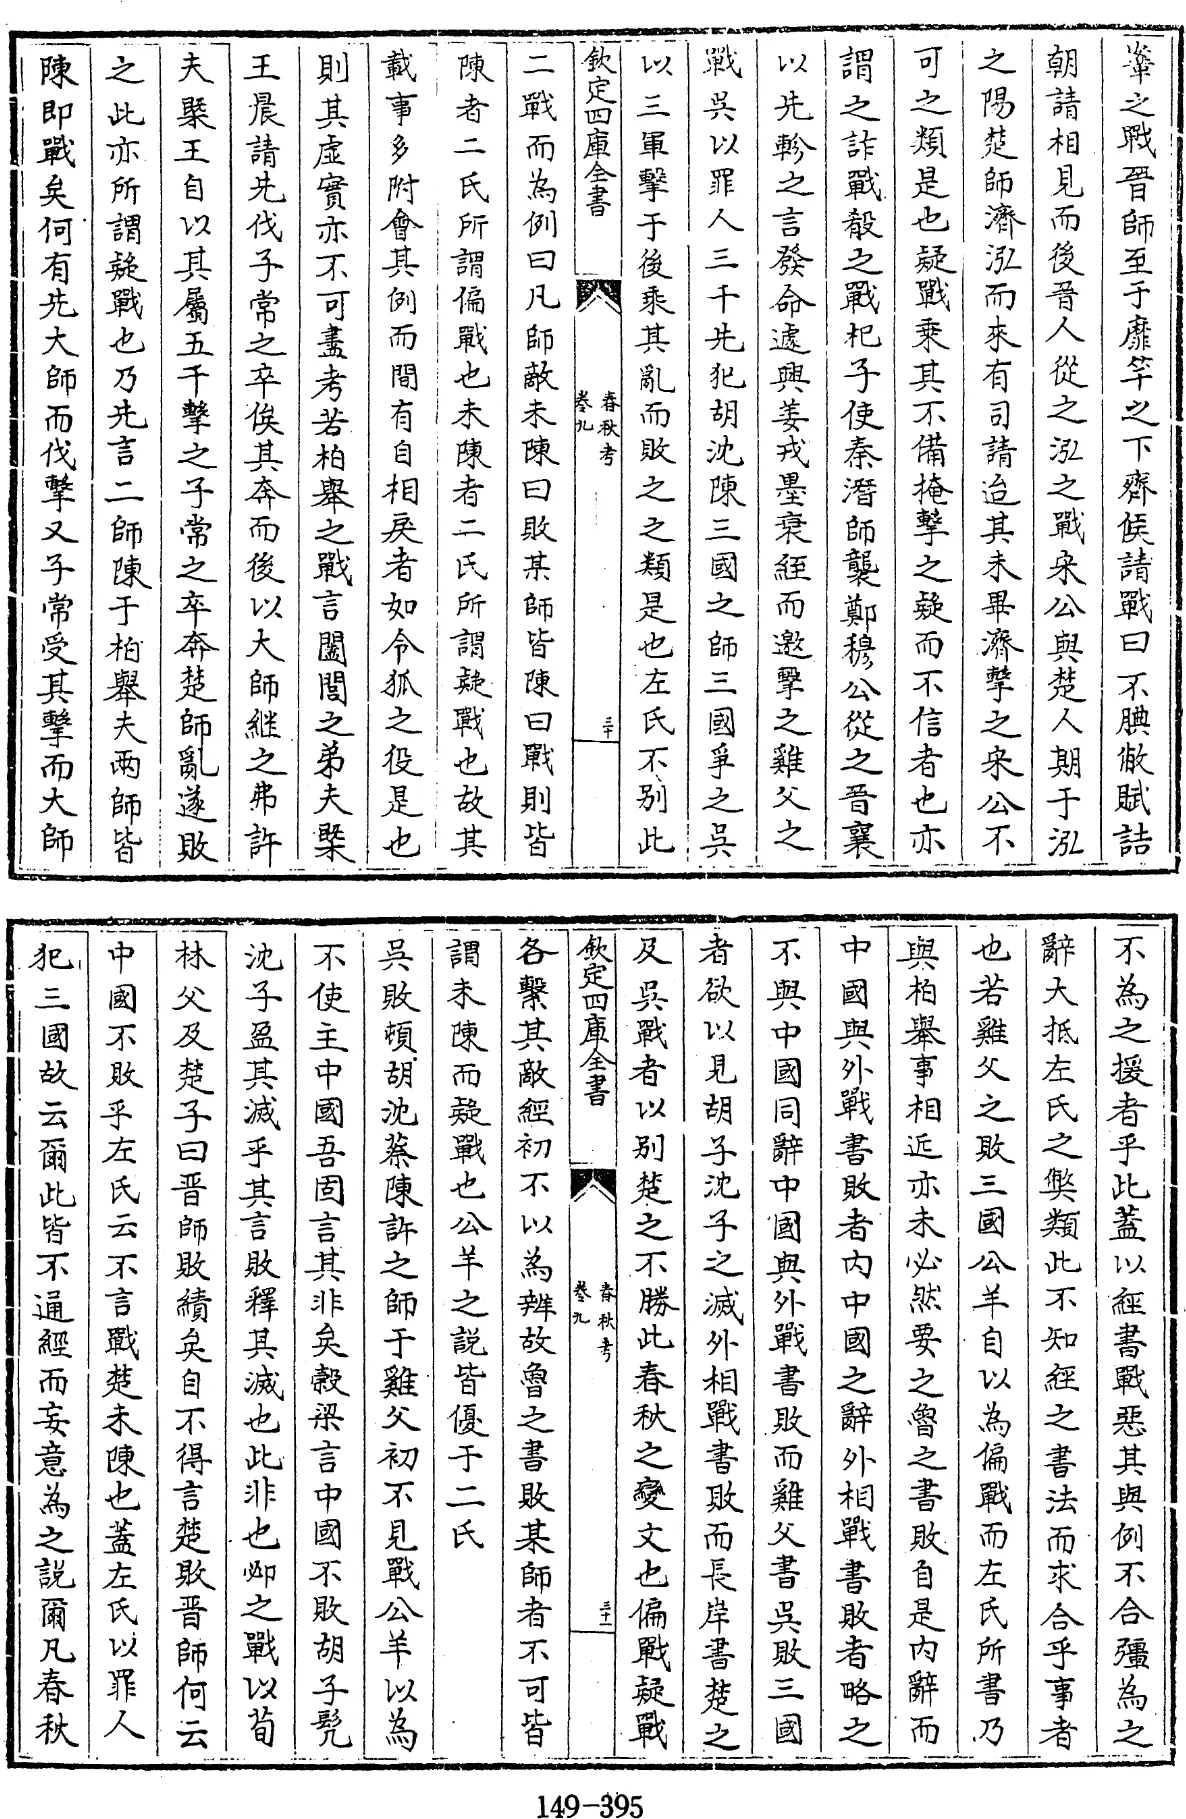 鞌之戰晉師至于靡筓之下齊侯請戰曰不腆敝賦詰
朝請相見而後晉人從之泓之戰宋公與楚人期于泓
之陽楚師濟泓而來有司請迨其未畢濟擊之宋公不
可之類是也疑戰乗其不備掩擊之疑而不信者也亦
謂之詐戰殽之戰杞子使秦潛師襲鄭穆公從之晉襄
以先軫之言發命遽興姜戎墨衰絰而邀擊之雞父之
戰吳以罪人三千先犯胡沈陳三國之師三國爭之吳
以三軍擊于後乗其亂而敗之之類是也左氏不別此
欽定四庫全書
春秋考
卷九
三十
二戰而為例曰凡師敵未陳曰敗某師皆陳曰戰則皆
陳者二氏所謂偏戰也未陳者二氏所謂疑戰也故其
載事多附會其例而間有自相戾者如令狐之役是也
則其虛實亦不可盡考若柏舉之戰言闔閭之弟夫槩
王晨請先伐子常之卒俟其奔而後以大師繼之弗許
夫槩王自以其屬五千擊之子常之卒奔楚師亂遂敗
之此亦所謂疑戰也乃先言二師陳于柏舉夫兩師皆
陳即戰矣何有先大師而伐擊又子常受其擊而大師
不為之援者乎此蓋以經書戰惡其與例不合彊為之
辭大抵左氏之獘類此不知經之書法而求合乎事者
也若雞父之敗三國公羊自以為偏戰而左氏所書乃
與柏舉事相近亦未必然要之魯之書敗自是内辭而
中國與外戰書敗者内中國之辭外相戰書敗者略之
不與中國同辭中國與外戰書敗而雞父書吳敗三國
者欲以見胡子沈子之滅外相戰書敗而長岸書楚之
及吳戰者以別楚之不勝此春秋之變文也偏戰疑戰
欽定四庫全書
春秋考
卷九
三十一
各繫其敵經初不以為辨故魯之書敗某師者不可皆
謂未陳而疑戰也公羊之説皆優于二氏
吳敗頓胡沈蔡陳許之師于雞父初不見戰公羊以為
不使主中國吾固言其非矣穀梁言中國不敗胡子髠
沈子盈其滅乎其言敗釋其滅也此非也邲之戰以荀
林父及楚子曰晉師敗績矣自不得言楚敗晉師何云
中國不敗乎左氏云不言戰楚未陳也蓋左氏以罪人
犯三國故云爾此皆不通經而妄意為之説爾凡春秋
149-395